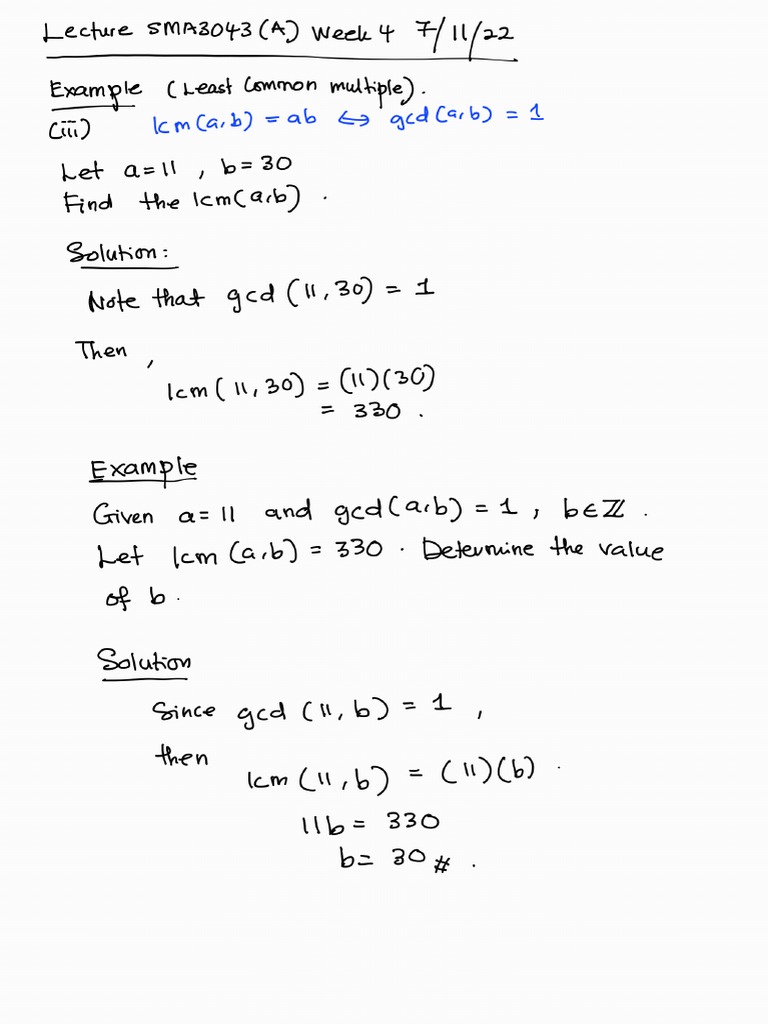 Lecture SMA3043 (A) Week 4 7/11/22
Example (Least Common multiple).
(iii) lcm(a,b) = ab ⟺ gcd(a,b) = 1
Let a=11 , b=30
Find the lcm(a,b) .
Solution:
Note that gcd (11, 30) = 1
Then ,
lcm( 11, 30) = (11)(30)
= 330 .
Example
Given a=11 and gcd(a,b) = 1 , b∈ℤ .
Let lcm (a,b) = 330 . Determine the value
of b .
Solution
Since gcd (11, b) = 1 ,
then
lcm (11, b) = (11)(b) .
11b = 330
b= 30 # .